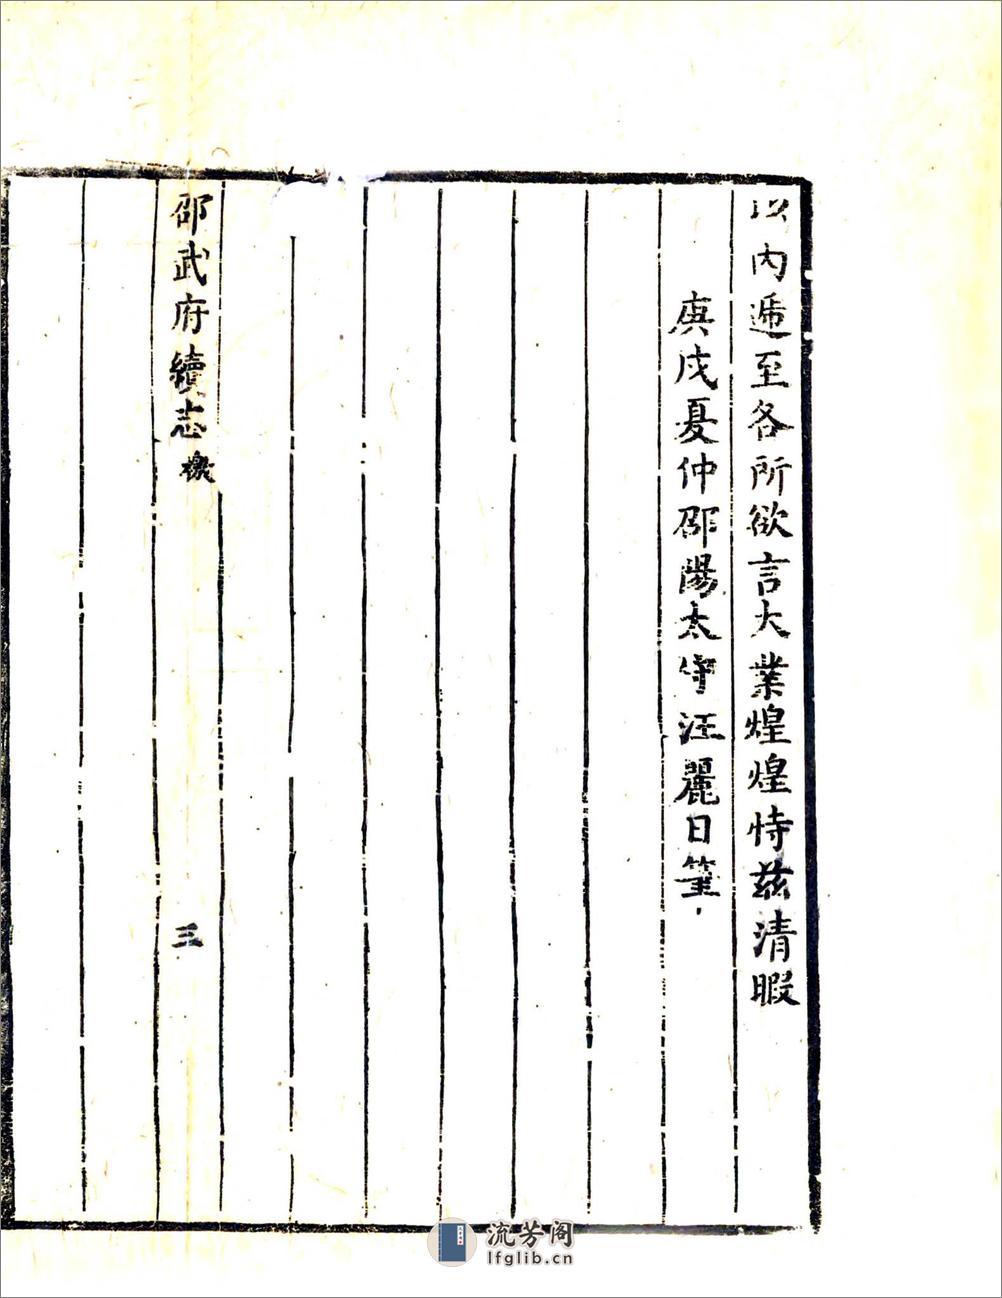 以內遞至各所欲言大業煌煌恃茲清暇
庚戌夏仲邵陽太守汪麗日筆
邵武府續志
檄
三
流芳阁
lfglib.cn